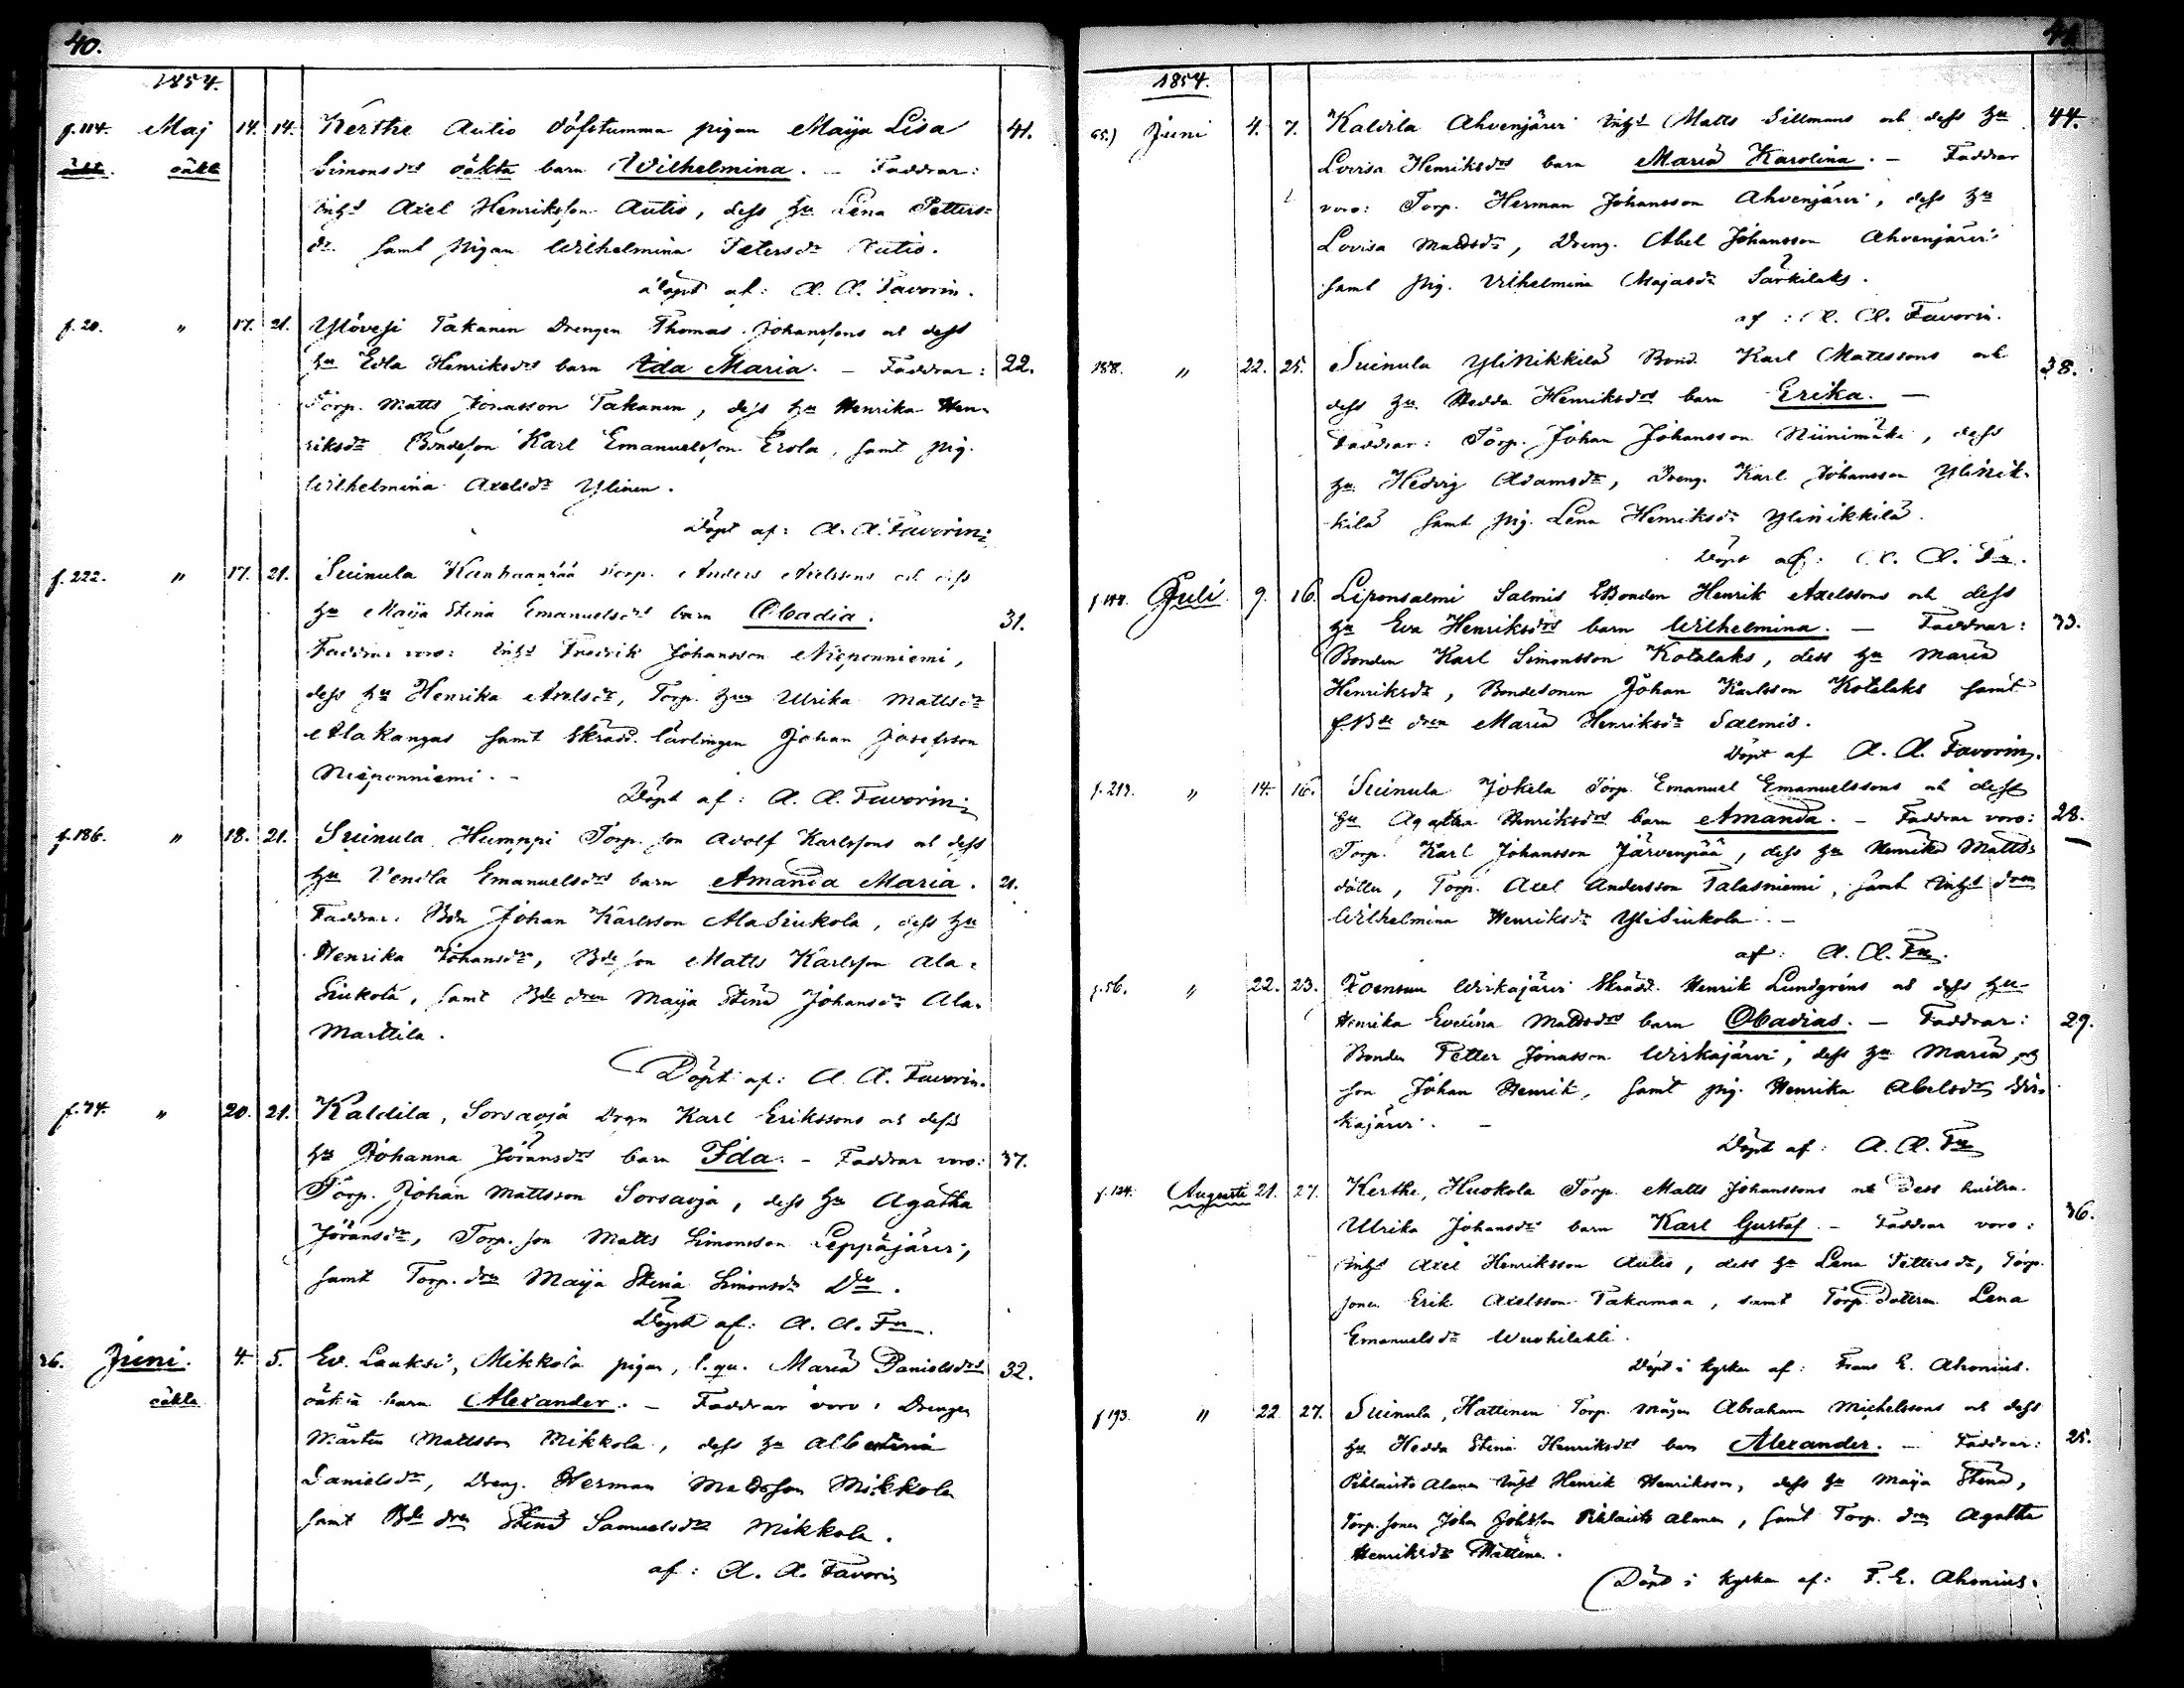 40.
1854.
f. 114. Maj 14. 14. Kerthe Autio döfstumma pigan Maija Lisa 41.
oäkta Simonsdrs oäkta barn Wilhelmina. – Faddrar:
Inhs Axel Henriksson Autio, dess hu Lena Petters=
dr samt pigan Wilhelmina Petersdr Autio.
döpt af: A. A. Favorin.
f. 20. " 17. 21. Ylövesi Takanen Drengen Thomas Johanssons och dess
hu Edla Henriksdrs barn Ada Maria. – Faddrar: 22.
Torp. Matts Jonasson Takanen, dess hu Henrika Hen-
riksdr Bondeson Karl Emanuelsson Erola, samt pig.
Wilhelmina Axelsdr Ylinen.
Döpt af: A. A. Favorin.
f. 222. " 17. 21. Suinula Torp. Anders Axelssons och dess
hu Maija Stina Emanuelsdrs barn Obadia. 31.
Faddrar voro: Inhs Fredrik Johansson Nieponniemi,
dess hu Henrika Axelsdr, Torp. hun Ulrika Mattsdr
Alakangas samt Skrädd. lärlingen Johan Josefsson
Nieponniemi. –
Döpt af: A. A. Favorin.
f. 186. " 18. 21. Suinula Humppi Torp. son Adolf Karlssons och dess
hu Vendla Emanuelsdrs barn Amanda Maria. 21.
Faddrar: Bdn Johan Karlsson AlaSiukola, dess hu
Henrika Johansdr, Bde son Matts Karlsson Ala-
Siukola, samt Bde dren Maija Stina Johansdr Ala-
Marttila.
Döpt af: A. A. Favorin.
f. 74. " 20. 21. Kaldila, Sorsaoja Drgn Karl Erikssons och dess
hu Johanna Jöransdrs barn Ida. – Faddrar voro: 37.
Torp. Johan Mattsson Sorsaoja, dess hu Agatha
Jöransdr, Torp. son Matts Simonsson Leppäjärvi,
samt Torp. drn Maija Stina Simonsdr Do.
Döpt af: A. A. Fn.
36. Juni. 4. 5. Ev. Laukši, Mikkola pigan, l. qu. Maria Danielsdrs 32.
oäkta oäkta barn Alexander. – Faddrar voro: Drengen
Mårten Mattsson Mikkola, dess hu Albertina
Danielsdr, Dreng. Herman Mattsson Mikkola
samt Bde drn Stina Samuelsdr Mikkola.
af: A. A. Favorin
41
1854.
65.) Juni 4. 7. Kaldila Ahvenjärvi Inhs Matts Sillmans och dess hu 44.
Lovisa Henriksdrs barn Maria Karolina. – Faddrar
voro: Torp. Herman Johansson Ahvenjärvi, dess hu
Lovisa Mattsdr, Dreng. Abel Johansson Ahvenjärvi
samt pig. Vilhelmina Majasdr Särkilaks.
af: A. A. Favorin.
188. " 22. 25. Suinula YliNikkilä Bond. Karl Mattssons och 38.
dess hu Hedda Henriksdrs barn Erika. –
Faddrar: Torp. Johan Johansson Niinimäki, dess
hu Hedvig Adamsdr, Dreng. Karl Johansson YliNik-
kilä samt pig. Lena Henriksdr Ylinikkilä.
Döpt af: A. A. Fn.
f. 144. Juli 9. 16. Liponsalmi Salmis Bonden Henrik Axelssons och dess
hu Eva Henriksdrs barn Wilhelmina. – Faddrar: 33.
Bonden Karl Simonsson Kotalaks, dess hu Maria
Henriksdr, Bondesonen Johan Karlsson Kotalaks samt
Bde dren Maria Henriksdr Salmis.
Döpt af A. A. Favorin.
f. 219. " 14. 16. Suinula Jokela Torp. Emanuel Emanuelssons och dess
hu Agatha Henriksdrs barn Amanda. – Faddrar voro: 28.
Torp. Karl Johansson Järvenpää, dess hu Henrika Matts-
dotter, Torp. Axel Andersson Talasniemi, samt Inhs dren
Wilhelmina Henriksdr YliSiukola. –
af: A. A. Fn.
f. 56. " 22. 23. Roensuu Wirkajärvi Skrädd. Henrik Lundgréns och dess hu
Henrika Evelina Mattsdrs barn Obadias. – Faddrar: 29.
Bonden Petter Jonasson Wirkajärvi, dess hu Maria och
son Johan Henrik, samt pig. Henrika Abelsdr Wir-
kajärvi. –
Döpt af: A. A. Fn
f. 124. Augusti 21. 27. Kerthe, Huokola Torp. Matts Johanssons och dess hustru
Ulrika Johansdrs barn Karl Gustaf. – Faddrar voro: 36.
Inhs Axel Henriksson Autio, dess hu Lena Pettersdr, Torp.
sonen Erik Axelsson Takamaa, samt Torp. dottren Lena
Emanuelsdr Wuohilahti.
Döpt i kyrkan af: Frans E. Ahonius.
f 193. " 22 27. Suinula, Hattinen Torp. mågen Abraham Michelssons och dess
hu Hedda Stina Henriksdrs barn Alexander. – Faddrar: 25.
Pihlaisto Alanen Inhs Henrik Henriksson, dess hu Maija Stina,
Torp. sonen Johan Johsson Pihlaisto Alanen, samt Torp. dren Agatha
Henriksdr Hattinen.
Döpt i kyrkan af: F. E. Ahonius.